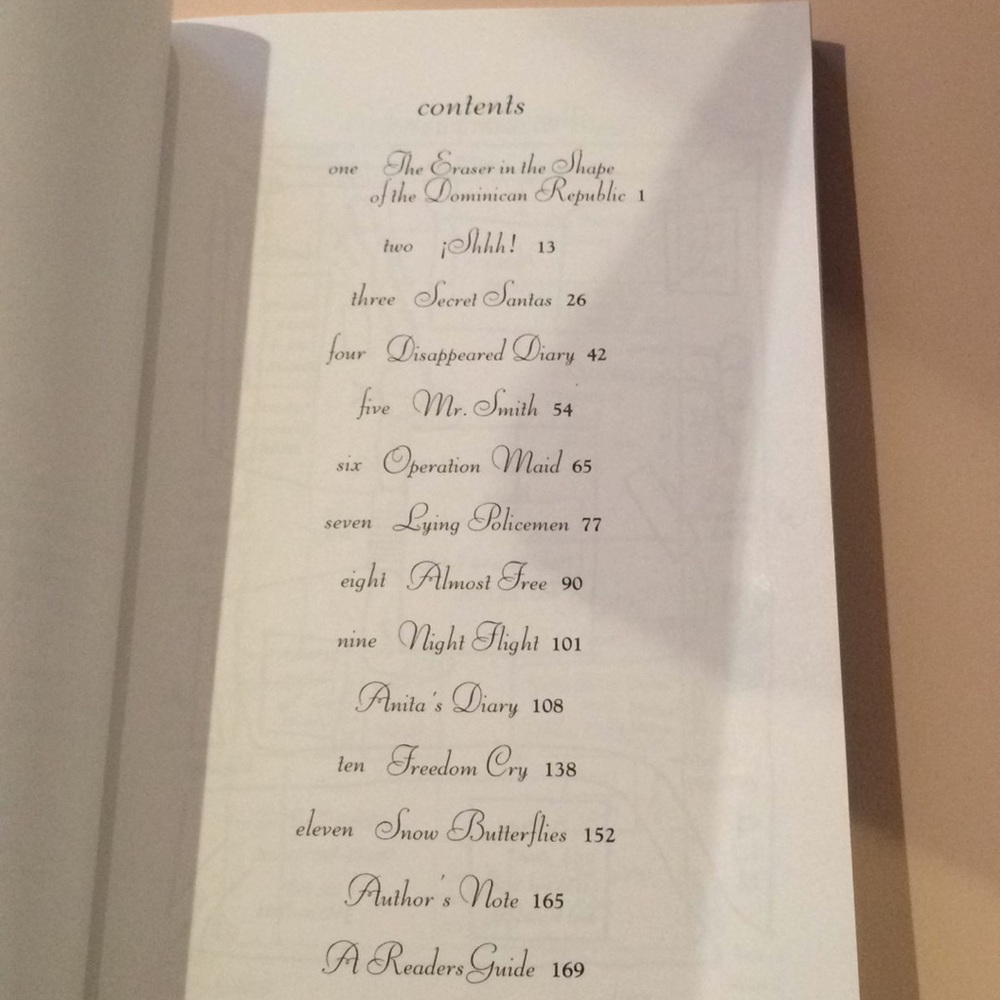 contents
one The Eraser in the Shape
of the Dominican Republic 1
two ¡Shhh! 13
three Secret Santas 26
four Disappeared Diary 42
five Mr. Smith 54
six Operation Maid 65
seven Lying Policemen 77
eight Almost Free 90
nine Night Flight 101
Anita's Diary 108
ten Freedom Cry 138
eleven Snow Butterflies 152
Author's Note 165
A Readers Guide 169